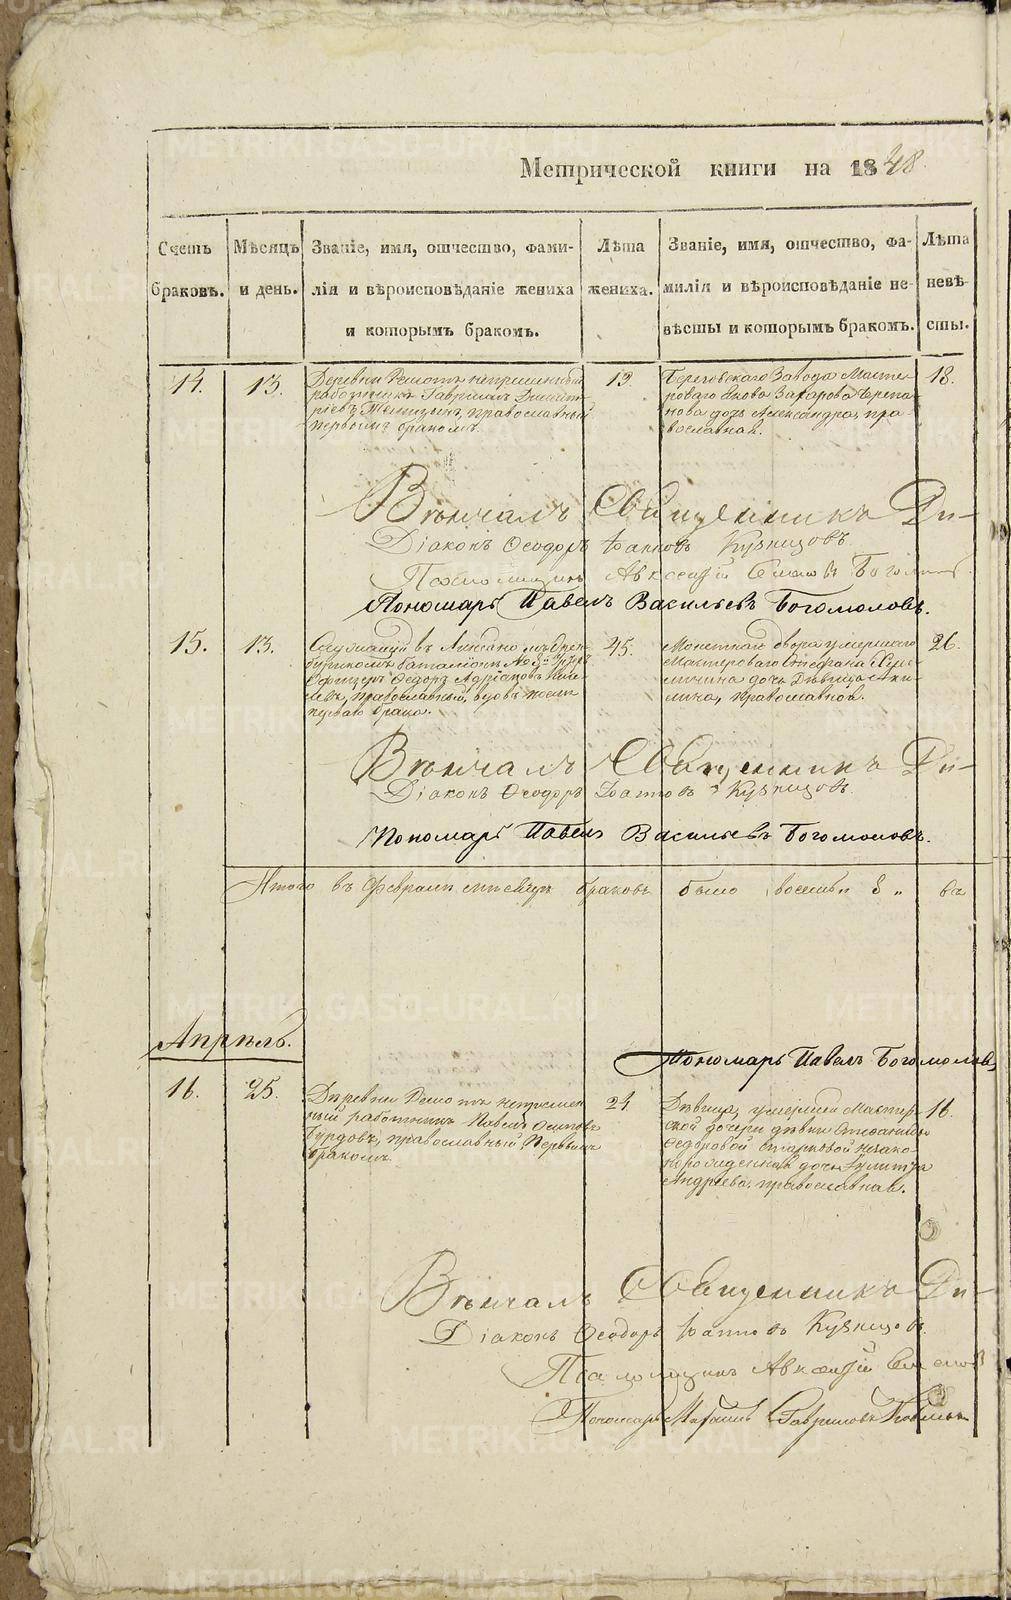 Метрической книги на 1848.
Счетъ браковъ.
Мѣсяцъ и день.
Званіе, имя, отчество, фами-
лія и вѣроисповѣданіе жениха
и которымъ бракомъ.
Лѣта жениха.
Званіе, имя, отчество, фа-
милія и вѣроисповѣданіе не-
вѣсты и которымъ бракомъ.
Лѣта невѣ-
сты.
14.
13.
Деревни непремѣнный
работникъ Гавріилъ Димит-
ріевъ православный
первымъ бракомъ.
19.
Березовскаго Завода Масте-
роваго Якова Захарова Черепа-
нова дочь Александра, пра-
вославная.
18.
Вѣнчалъ Священникъ Ди-
Діаконъ Ѳеодоръ Іоанновъ Кузнецовъ
Псаломщикъ Авксентій
Пономарь Павелъ Васильевъ Богомоловъ.
15.
13.
Служащій въ Орен-
бургскомъ баталіонѣ № 8й Унтеръ
Офицеръ Ѳедоръ Адріановъ
православный, вдовъ послѣ
перваго брака.
45.
Монетнаго двора умершаго
Мастероваго Стефана
дочь Дѣвица Аки-
лина, православная.
26.
Вѣнчалъ Священникъ Ди-
Діаконъ Ѳеодоръ Іоанновъ Кузнецовъ
Пономарь Павелъ Васильевъ Богомоловъ.
Итого въ Февралѣ мѣсяцѣ браковъ было восемь 8 „
Апрѣль.
Пономарь Павелъ Богомоловъ
16.
25.
Деревни непремѣн
ный работникъ Павелъ Осиповъ
Бурдовъ, православный, Первымъ
бракомъ.
24.
Дѣвица, умершей Мастер-
ской дочери дѣвки Степаниды
Ѳедоровой незако-
норожденная дочь Улитта
Андреева, православная.
16.
Вѣнчалъ Священникъ Ди-
Діаконъ Ѳеодоръ Іоанновъ Кузнецовъ
Псаломщикъ Авксентій
Пономарь Гавриловъ
METRIKI.GASO-URAL.RU